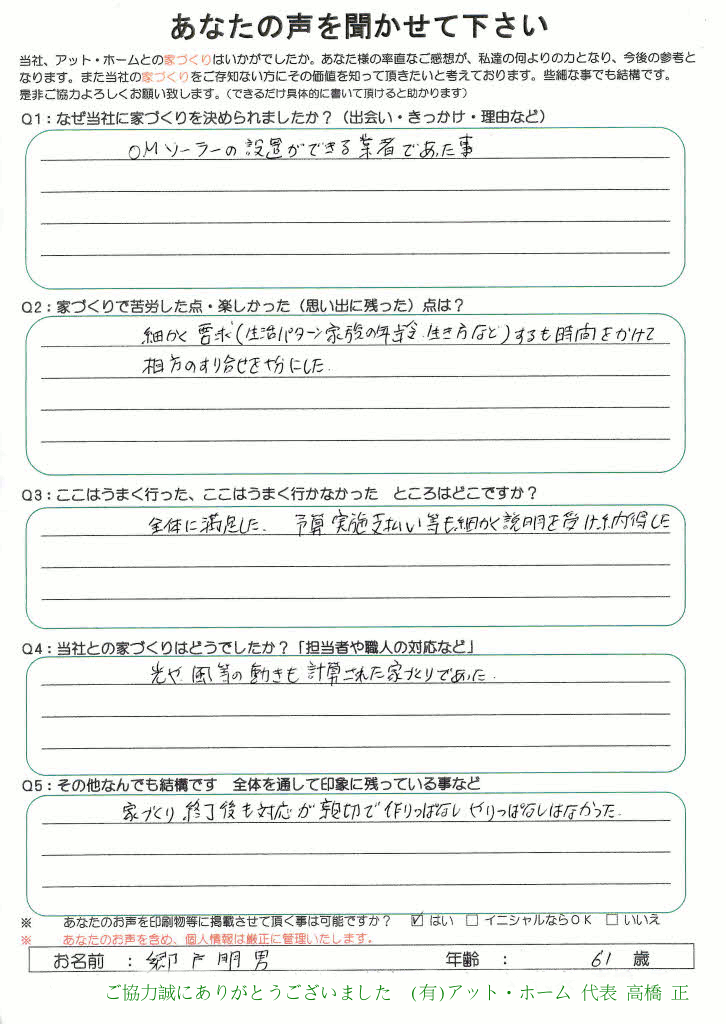 あなたの声を聞かせて下さい
当社、アット・ホームとの家づくりはいかがでしたか。あなた様の率直なご感想が、私達の何よりの力となり、今後の参考と
なります。また当社の家づくりをご存知ない方にその価値を知って頂きたいと考えております。些細な事でも結構です。
是非ご協力よろしくお願い致します。（できるだけ具体的に書いて頂けると助かります）
Q1：なぜ当社に家づくりを決められましたか？（出会い・きっかけ・理由など）
OMソーラーの設置ができる業者であった事
Q2：家づくりで苦労した点・楽しかった（思い出に残った）点は？
細かく要求(生活パターン家族の年齢.生き方など)するも時間をかけて
相方のすり合せを十分にした.
Q3：ここはうまく行った、ここはうまく行かなかった　ところはどこですか？
全体に満足した. 予算実施支払い等も細かく説明を受け納得した
Q4：当社との家づくりはどうでしたか？「担当者や職人の対応など」
光や風等の動きも計算された家づくりであった.
Q5：その他なんでも結構です　全体を通して印象に残っている事など
家づくり終了後も対応が親切で作りっぱなしやりっぱなしはなかった.
※　あなたのお声を印刷物等に掲載させて頂く事は可能ですか？　☑ はい　□ イニシャルならOK　□ いいえ
※　あなたのお声を含め、個人情報は厳正に管理いたします。
お名前　：郷戸明男　年齢　：　61　歳
ご協力誠にありがとうございました　(有)アット・ホーム 代表 高橋 正